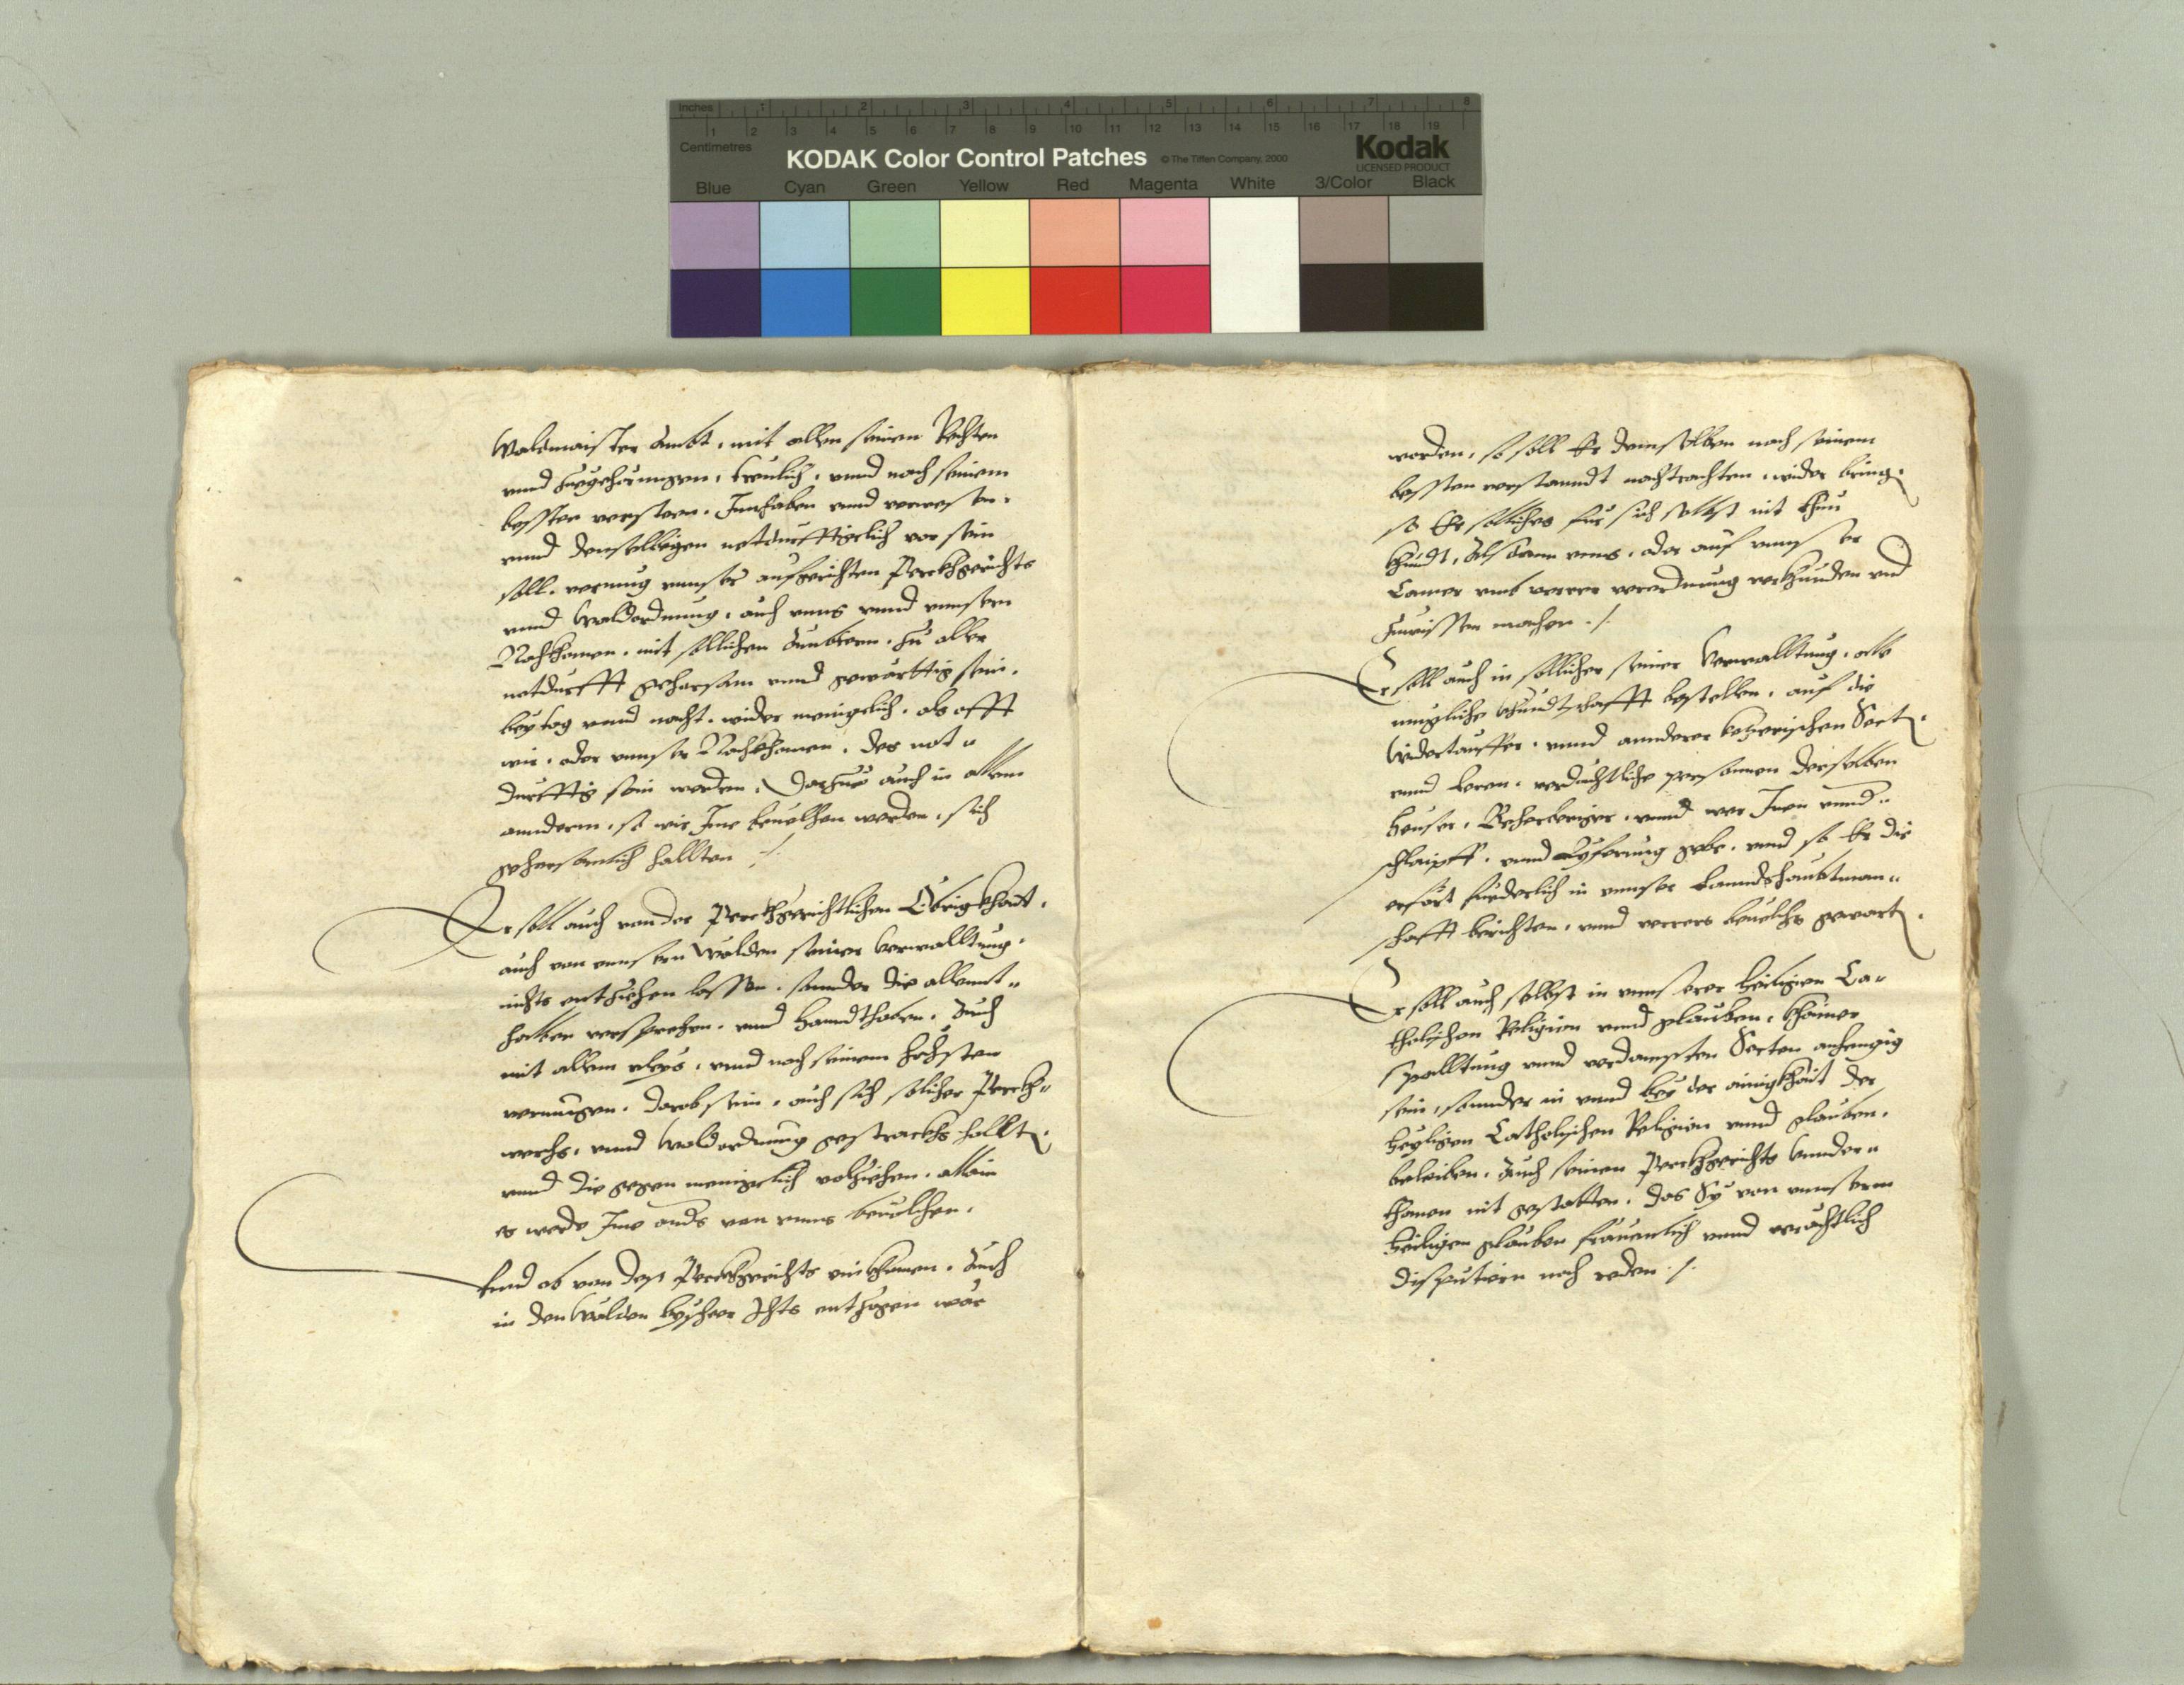 Inches 1 2 3 4 5 6 7 8
1 2 3 4 5 6 7 8 9 10 11 12 13 14 15 16 17 18 19
Centimetres
KODAK Color Control Patches © The Tiffen Company, 2000 Kodak
LICENSED PRODUCT
Blue Cyan Green Yellow Red Magenta White 3/Color Black
Waldmaister Ambt, mit allen seinen Rechten
vnnd zuegehörungen, treulich, vnnd nach seinem
bessten versteen, Innhaben vnnd verwesen,
vnnd denselbigen notdurfftigclich vor sein
soll, vermug vnnser aufgerichten Perckhgerichts
vnnd Waldordnung, auch vnns vnnd vnnsern
Nachkhomen, mit sollichen Ämbtern, zu aller
notdurfft gehorsam vnnd gewärttig sein,
bey tag vnnd nacht, wider menigclich, als offt
wir, oder vnnser Nachkhomen, des not„
durfftig sein werden, Darzue auch in allem
annderm, so wir Ime beuelhen werden, sich
gehorsamlich hallten ./.
Er soll auch von der Perckhgerichtlichen Obrigkhait,
auch von vnnsern Wälden seiner Verwalltung,
nichts entziehen lassen, sonnder die allennt„
halben versprechen, vnnd hanndthaben, Auch
mit allem vleys, vnnd nach seinem höchsten
vermügen, darob sein, auch sich solicher Perckh„
werchs, vnnd Waldordnung gestrackhs hallten,
vnnd die gegen menigclich volziehen, allain
es werde Ime annders von vnns beuolhen,
Vnnd ob von dem Perckhgerichts einkhomen, Auch
in den Wälden bisheer Ichts entzogen wär
worden, so soll Er demselben nach seinem
bessten verstanndt nachtrachten, wider bringen
so Er solliches für sich selbst nit thun
khundt, Alsdann vnns, oder auf vnnser
Camer vmb verrer verordnung verkhünden vnd
zuwissen machen ./.
Er soll auch in sollicher seiner Verwalltung, alle
mügliche khundtschafft bestellen, auf die
Widertauffer, vnnd annderer ketzerischen Secten,
vnnd Leren, verdächtliche personnen derselben
heuser, Beherberiger, vnnd wer Inen vnnd„
schlaipff, vnnd Lyferung gebe, vnnd so Er die
erfärt fürderlich in vnnser Lanndshaubtman„
schafft berichten, vnnd verrers beuelhs gewarten,
Er soll auch selbst in vnnserer heiligen Ca„
tholischen Religion vnnd glauben, khainer
Spalltung vnnd verdampten Secten anhengig
sein, sonnder in vnnd bey der ainigkhait der
heyligen Catholischen Religion vnnd glauben,
beleiben, Auch seinen Perckhgerichts vnnder„
thanen nit gestatten, das Sy von vnnserm
heiligen glauben fräuenlich vnnd verächtlich
disputiern noch reden ./.